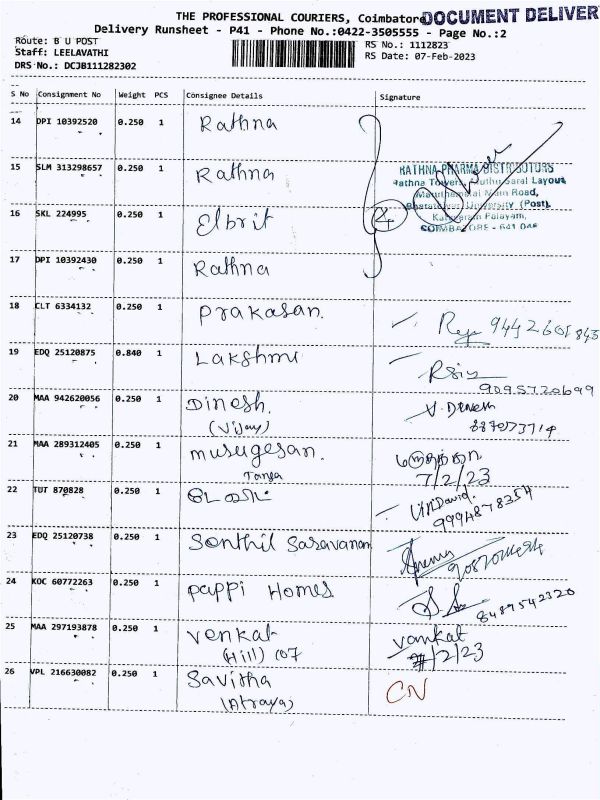 THE PROFESSIONAL COURIERS, Coimbatore
DOCUMENT DELIVER
Delivery Runsheet - P41 - Phone No.:0422-3505555 - Page No.:2
Route: B U POST
RS No.: 1112823
Staff: LEELAVATHI
RS Date: 07-Feb-2023
DRS No.: DCJB111282302
S No Consignment No Weight PCS Consignee Details Signature
14 DPI 10392520 0.250 1 Rathna
15 SLM 313298657 0.250 1 Rathna
RATHNA PHARMA DISTRIBUTORS
Rathna Towers, Layout,
Maruthamalai Main Road,
Bharathiar University (Post),
Palayam,
COIMBATORE - 641 046
16 SKL 224995 0.250 1 Elbrit 4
17 DPI 10392430 0.250 1 Rathna
18 CLT 6334132 0.250 1 Prakasan.
19 EDQ 25120875 0.840 1 Lakshmi
9095720699
20 MAA 942620056 0.250 1 Dinesh. V. Dinesh
(Vijay)
21 MAA 289312405 0.250 1 Murugesan.
7/2/23
22 TUT 870828 0.250 1 David
9994878354
23 EDQ 25120738 0.250 1 Senthil Saravanan
24 KOC 60772263 0.250 1 Pappi Homes
8489542320
25 MAA 297193878 0.250 1 Venkat Vankat
(Hill) C07 7/2/23
26 VPL 216630082 0.250 1 Savitha CN
(Atraya)